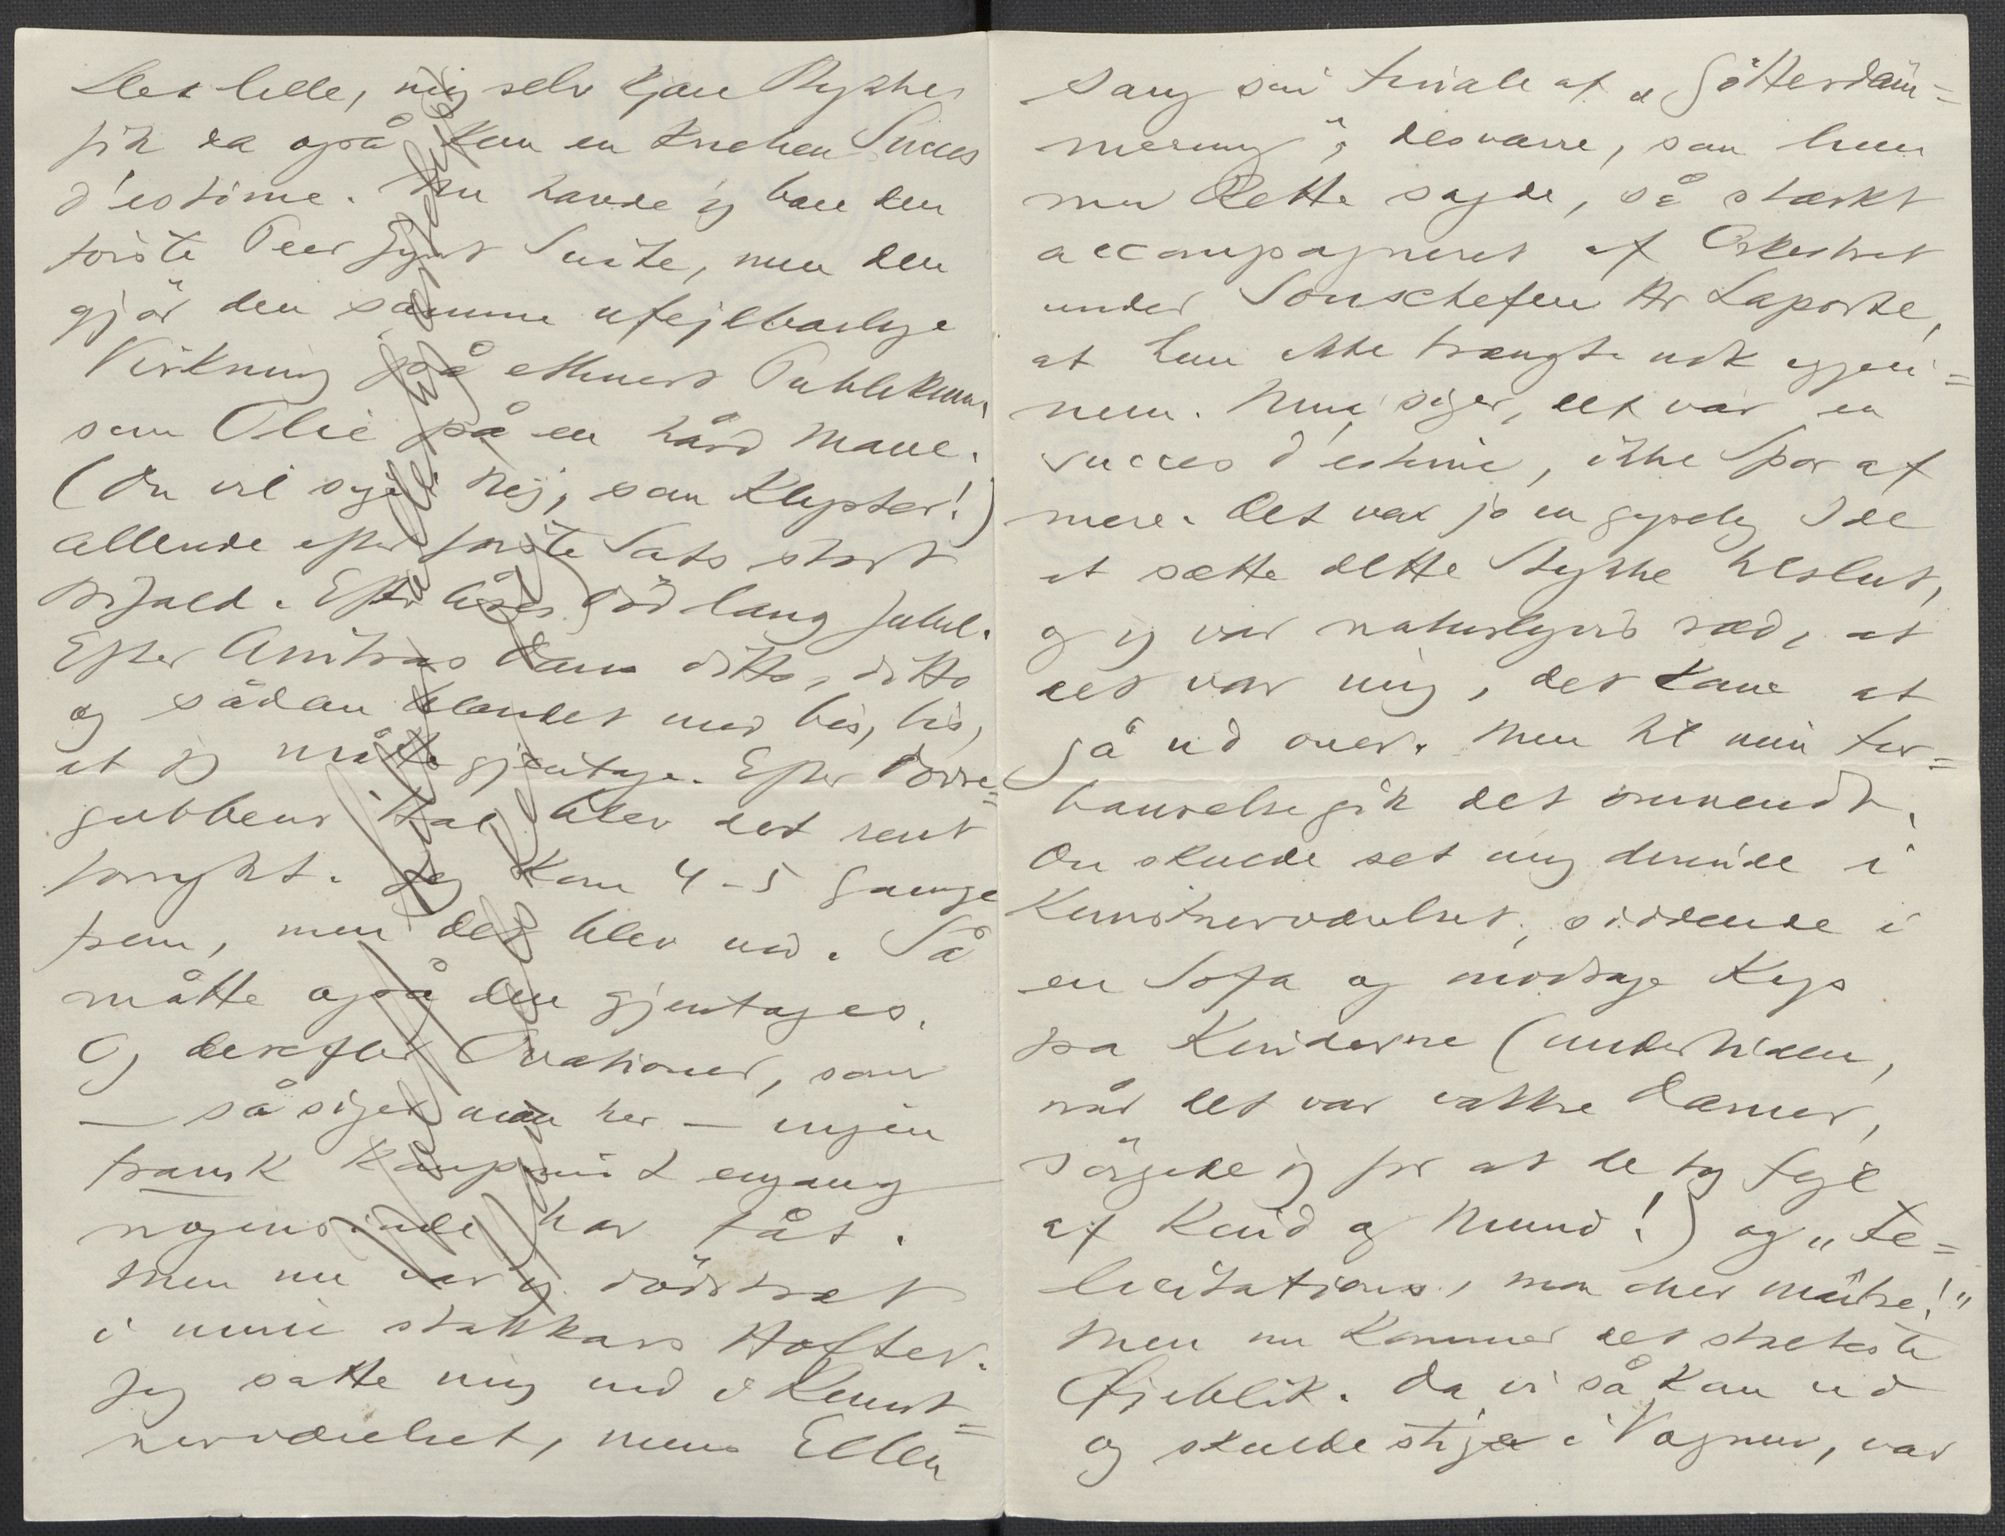 Det lille, mig selv kjære Stykke
fik da også kun en knebén Succes
d'estime. Nu havde jeg bare den
første Peer Gynt Suite, men den
gjør den samme ufejlbarlige
Virkning på ethvert Publikum,
som Olie på en hård Mave.
(Du vil sige: Nej, som Klyster!)
Allerede efter første Sats stort
Bifald. Efter Åses Död lang Jubel.
Efter Anitras Dans ditto, ditto
og sådan blandet med bis, bis,
at jeg måtte gjentage. Efter Dovre=
gubbens Hal blev det rent
forrykt. Jeg kom 4-5 Gange
frem, men det blev ved. Så
måtte også den gjentages.
Og derefter Ovationer, som
— så siger man her — ingen
fransk Komponist engang
nogensinde har fåt.
Men nu var jeg dödstræt
i mine stakkars Hofter.
Jeg satte mig ned i Kunst=
nerværelset, mens Ellen
sang sin Finale af „Götterdäm=
merung", desværre, som hun
med Rette sagde, så stærkt
accompagneret af Orkestret
under Souschefen Hr Laporte,
at hun ikke trængte nok igjen=
nem. Nina siger, det var en
succes d'estime, ikke Spor af
mere. Det var jo en gyselig Idé
at sætte dette Stykke tilslut,
og jeg var naturligvis ræd, at
det var mig, det kom at
gå ud over. Men til min For=
bauselse gik det omvendt.
Du skulde set mig derinde i
Kunstnerværelset, siddende i
en Sofa og modtage Kys
på Kinderne (undertiden,
når det var vakkre Damer,
sörgede jeg for at de tog Fejl
af Kind og Mund!) og „Fe=
licitations, mon cher maître!"
Men nu kommer det stolteste
Øjeblik. Da vi så kom ud
og skulde stige i Vognen, var